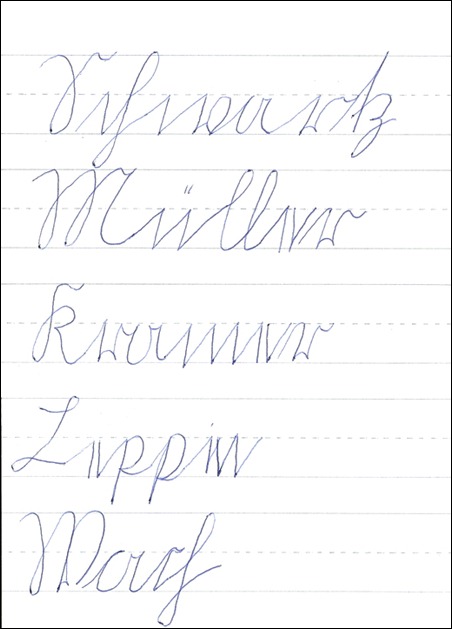 Schwartz
Müller
Kramer
Leppin
Wach